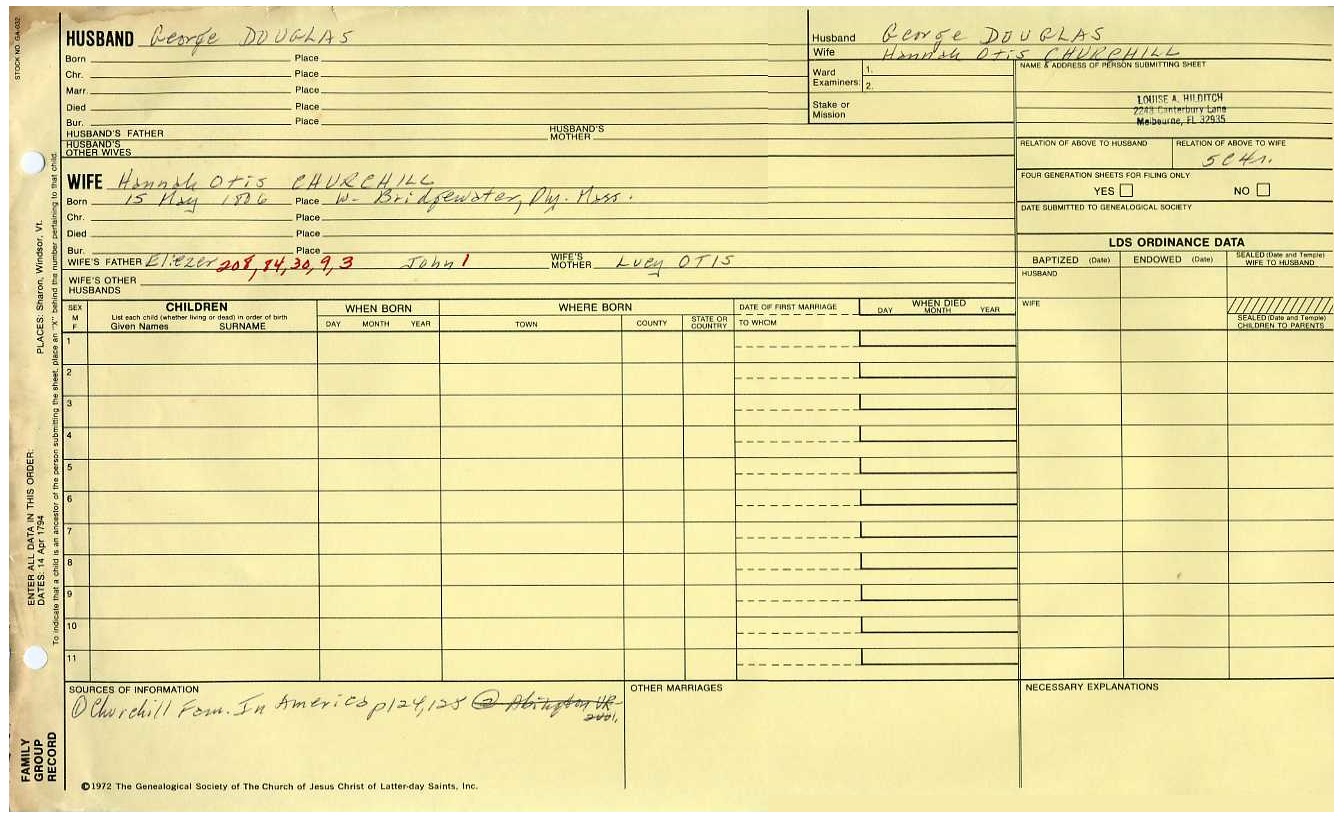 STOCK NO. GA-032
HUSBAND George DOUGLAS
Born Place
Chr. Place
Marr. Place
Died Place
Bur. Place
HUSBAND'S FATHER HUSBAND'S MOTHER
HUSBAND'S OTHER WIVES
Husband George DOUGLAS
Wife Hannah Otis CHURCHILL
Ward Examiners: 1.
2.
Stake or Mission
NAME & ADDRESS OF PERSON SUBMITTING SHEET
LOUISE A. HILDITCH
2248 Canterbury Lane
Melbourne, FL 32935
RELATION OF ABOVE TO HUSBAND RELATION OF ABOVE TO WIFE
5C4r.
FOUR GENERATION SHEETS FOR FILING ONLY
YES NO
DATE SUBMITTED TO GENEALOGICAL SOCIETY
WIFE Hannah Otis CHURCHILL
Born 15 May 1806 Place W. Bridgewater, Ply. Mass.
Chr. Place
Died Place
Bur. Place
WIFE'S FATHER Eliezer 208, 84, 30, 9, 3 John 1 WIFE'S MOTHER Lucy OTIS
WIFE'S OTHER HUSBANDS
LDS ORDINANCE DATA
BAPTIZED (Date) ENDOWED (Date) SEALED (Date and Temple) WIFE TO HUSBAND
HUSBAND
WIFE
SEALED (Date and Temple) CHILDREN TO PARENTS
SEX M F
CHILDREN
List each child (whether living or dead) in order of birth
Given Names SURNAME
WHEN BORN
DAY MONTH YEAR
WHERE BORN
TOWN COUNTY STATE OR COUNTRY
DATE OF FIRST MARRIAGE
TO WHOM
WHEN DIED
DAY MONTH YEAR
1
2
3
4
5
6
7
8
9
10
11
SOURCES OF INFORMATION
① Churchill Fam. In America p124,125 ② Abington VR
OTHER MARRIAGES
NECESSARY EXPLANATIONS
©1972 The Genealogical Society of The Church of Jesus Christ of Latter-day Saints, Inc.
FAMILY GROUP RECORD
ENTER ALL DATA IN THIS ORDER:
DATES: 14 Apr 1794 PLACES: Sharon, Windsor, Vt.
To indicate that a child is an ancestor of the person submitting the sheet, place an "X" behind the number pertaining to that child.